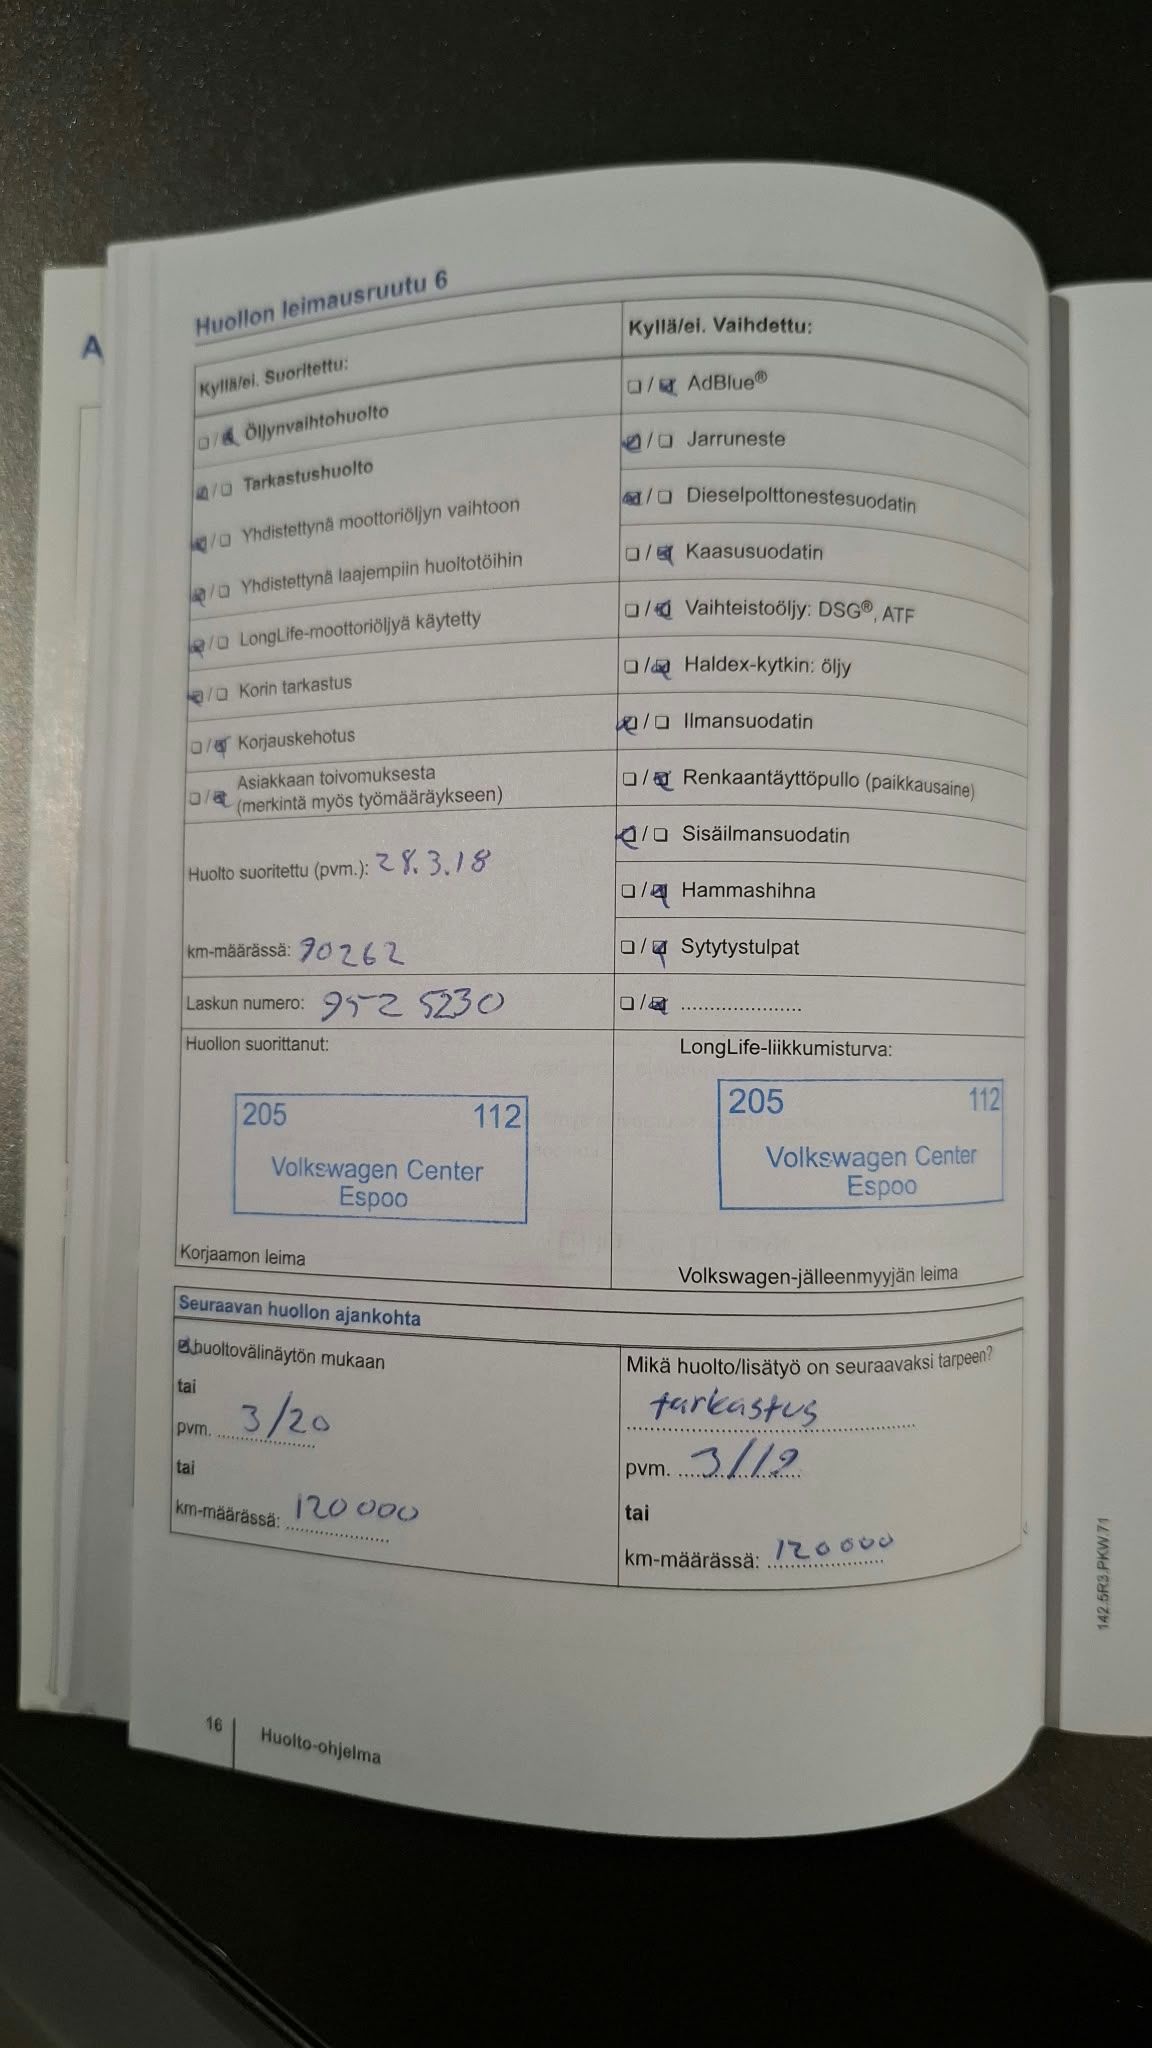 A
Huollon leimausruutu 6
Kyllä/ei. Suoritettu:
☐/☒ Öljynvaihtohuolto
☒/☐ Tarkastushuolto
☒/☐ Yhdistettynä moottoriöljyn vaihtoon
☒/☐ Yhdistettynä laajempiin huoltotöihin
☒/☐ LongLife-moottoriöljyä käytetty
☒/☐ Korin tarkastus
☐/☒ Korjauskehotus
☐/☒ Asiakkaan toivomuksesta
(merkintä myös työmääräykseen)
Huolto suoritettu (pvm.): 28.3.18
km-määrässä: 90262
Laskun numero: 952 5230
Huollon suorittanut:
205 112
Volkswagen Center
Espoo
Korjaamon leima
Kyllä/ei. Vaihdettu:
☐/☒ AdBlue®
☒/☐ Jarruneste
☒/☐ Dieselpolttonestesuodatin
☐/☒ Kaasusuodatin
☐/☒ Vaihteistoöljy: DSG®, ATF
☐/☒ Haldex-kytkin: öljy
☒/☐ Ilmansuodatin
☐/☒ Renkaantäyttöpullo (paikkausaine)
☒/☐ Sisäilmansuodatin
☐/☒ Hammashihna
☐/☒ Sytytystulpat
☐/☒ .....................
LongLife-liikkumisturva:
205 112
Volkswagen Center
Espoo
Volkswagen-jälleenmyyjän leima
Seuraavan huollon ajankohta
☒ huoltovälinäytön mukaan
tai
pvm. 3/20
tai
km-määrässä: 120 000
Mikä huolto/lisätyö on seuraavaksi tarpeen?
tarkastus
pvm. 3/19
tai
km-määrässä: 120 000
16 Huolto-ohjelma
142.5R3.PKW.71